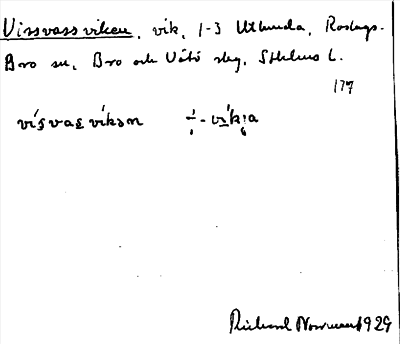 Vissvassviken, vik, 1-3 Utlunda, Roslags-
Bro sn, Bro och Vätö skg, Sthlms L.
177
víṣvas̱víkən ÷-vik:a
Richard Norrman 1929